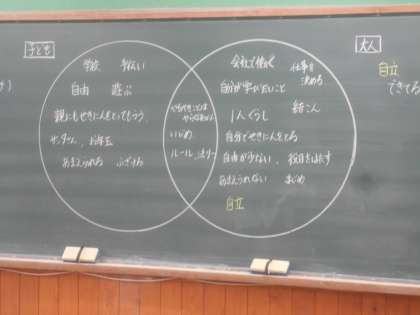 子ども
学校 手伝い
自由 遊ぶ
親にもせきにんをとってもらう
サンタさん、お年玉
あまえられる ふざける
やるべきことは
やらなきゃ
いじめ
ルール、法りつ
会社で働く 仕事を
決める
自分が学びたいこと
1人ぐらし 結こん
自分でせきにんをとる
自由が少ない、税金をはらう
あまえられない まじめ
自立
大人
自立
できてる